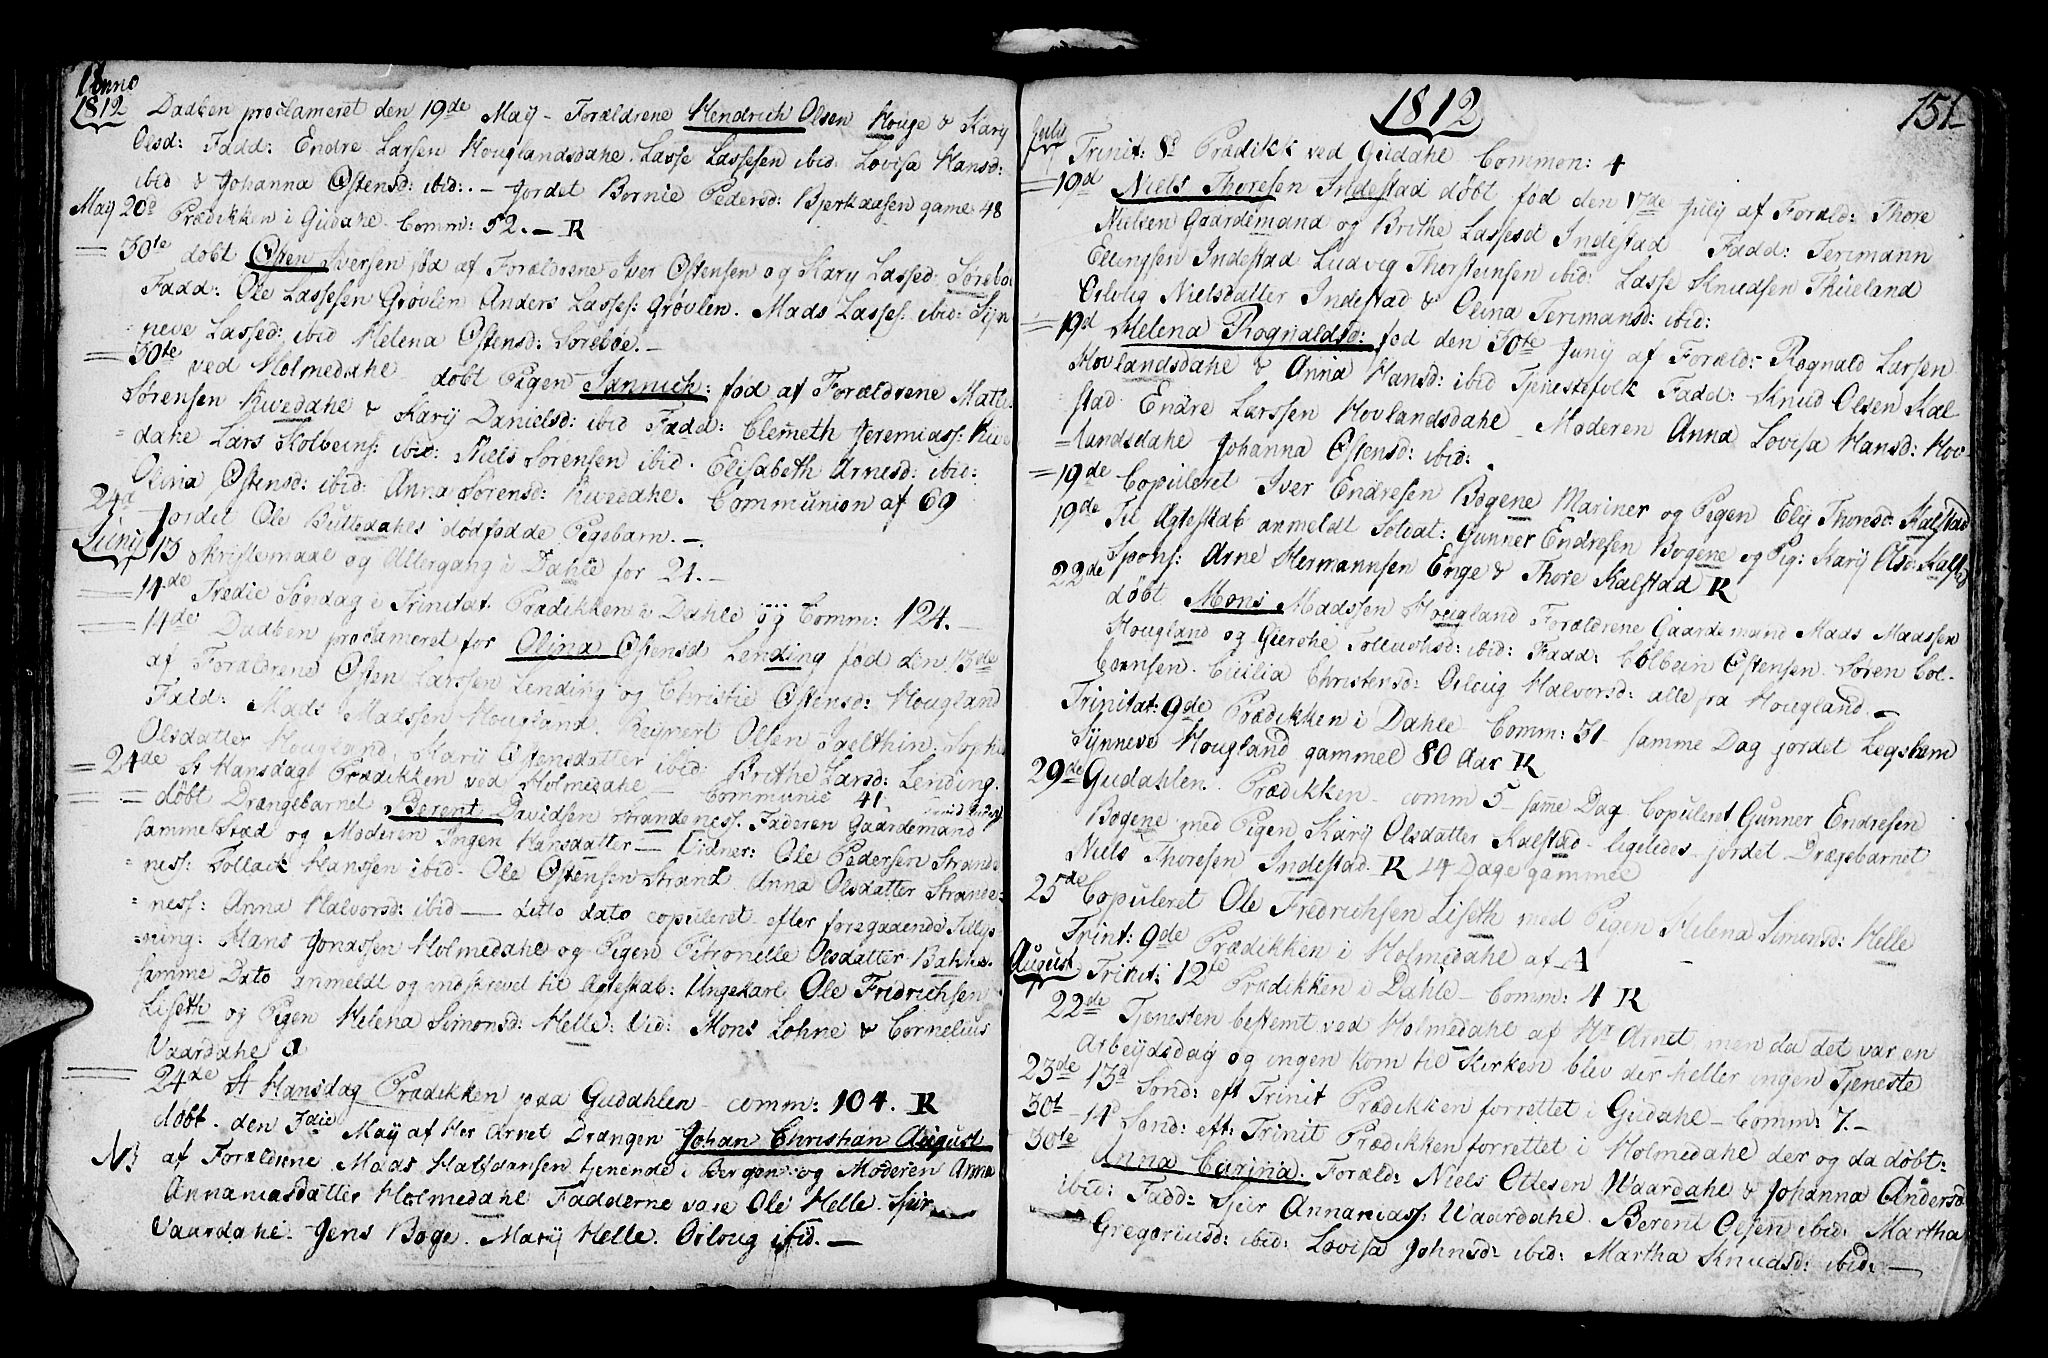 Anno
1812
Daaben proclameret den 19de Maij - Forældrene Hendrich Olsen Houge & Kary
Olsd: Fadd: Endre Larsen Houglandsdahe. Lasse Lassesen ibid. Lovisa Hansd:
ibid & Johanna Østensd: ibid:. - Jordet Bernie Pedersd: Bjerkaasen game 48
Maij 20d Prædikken i Gudahe. Comm: 52. - R
= 30te døbt Østen Iversen fød af Forældrene Iver Østensen og Kary Lassed. Sørebø
Fadd: Ole Lassesen Grøvlen Anders Lasses: Grøvlen. Mads Lasses: ibid: Syn
neve Lassed: ibid Helena Østensd: Sørebøe. -
= 30te ved Holmedahe døbt Pigen Jannich: fød af Forældrene
Sørensen Kvedahe & Kary Danielsd: ibid Fadd: Clemeth Jeremiass: Kve
dahe Lars Kolbeins: ibid: Niels Sørensen ibid. Elisabeth Arnesd: ibid:
Olina Østensd: ibid: Anna Sørensd: Kvedahe. Communion af 69
24d Jordet Ole dødfødde Pigebarn. -
Junij 13 Skriftemaal og Altergang i Dahle for 21. -
= 14de Tredie Søndag i Trinitat. Prædikken i Dahle og Comm: 124. -
= 14de Daaben proclameret for Olina Østensd Lending fød den 13de
af Forældrene Østen Larssen Lending og Christie Østensd: Hougland
Fadd: Mads Madssen Hougland. Reijnert Olsen Sophi
Olsdatter Hougland, Kary Østensdatter ibid: Brithe Larsd: Lending.
= 24de St Hansdag Prædikken ved Holmedahe - Communic 41.
= = døbt Drængebarnet Berent Davidsen Strandenes. Faderen Gaardemand
samme Stæd og Moderen Ingen Hansdatter - Vidner: Ole Pedersen Strande
nes: Tollack Hanssen ibid. Ole Østensen Strand. Anna Olsdatter Strande=
nes: Anna Halvorsd: ibid - Ditto dato copuleret efter foregaaende Tillys
=ning: Hans Jonassen Holmedahe og Pigen Petronelle Olsdatter
samme Dato anmeldt og indskrevet til Ægteskab: Ungekarl Ole Fridrichsen
Liseth og Pigen Helena Simonsd: Helle: Vid: Mons Lohne & Cornelius
Vaardahe
= 24de St Hansdag Prædikken paa Gudahlen - comm: 104. R
døbt. den 3die Maij af Her Arnet Drængen Johan Christian August
af Forældrene Mads Halfdansen tjenende i Bergen og Moderen Anna
Annaniasdatter Holmedahe Fadderne vare Ole Helle. Sjur
Vaardahe. Jens Bøge. Marij Helle. Orloug ibid. -
1812
151
July
Trinit: 8d Prædikk ved Gudahe Common: 4
=19d Niels Thoresen Indestad døbt fød den 17de Julij af Foræld: Thore
Nielsen Gaardemand og Brithe Lassesd Indestad Fadd: Jerimann
Ellingsen Indestad Ludvig Thorsteinsen ibid: Lasse Knudsen Thueland
Orloug Nielsdatter Indestad & Olina Jerimansd: ibid:
=19d Helena Rognaldsd: fød den 30te Junij af Foræld: Rognald Larsen
Hovlandsdahe & Anna Hansd: ibid Tjenestefolk Fadd: Knud Olsen Kal
stad Endre Larssen Hovlandsdahe - Moderen Anna Lovisa Hansd: Hov-
=landsdahe Johanna Østensd: ibid:
=19de Copuleret Iver Endresen Bogene Mariner og Pigen Elij Thoresd: Kalstad
19de Til Ægteskab anmeldt Soldat: Gunner Endresen Bogene og Pig: Karij Olsd: Kalstad
Spons: Arne Hermannsen Enge & Thore Kalstad R
22de døbt Mons Madssen Hougland Forældrene Gaardemand Mads Madssen
Hougland og Gierthe ibid: Fadd: Colbein Østensen. Søren Col-
beensen. Cicilia Christensd: Orloug Halvorsd: alle fra Hougland. -
Trinitat: 9de Prædikken i Dahle Comm: 31 samme Dag jordet Legslem
Synneve Hougland gammel 80 Aar R
29de Gudahlen. Prædikken - comm 5 - same Dag Copuleret Gunner Endresen
Bogene med Pigen Karij Olsdatter Kalstad - ligeledes jordet Drægebarnet
Niels Thoresen Indestad. R 14 Dage gammel
25de Copuleret Ole Fredrichsen Liseth med Pigen Helena Simonsd: Helle
Trint: 9de Prædikken i Holmedahe af A -
August Trinit: 12te Prædikken i Dahle - Comm: 4 R
22de Tjenesten bestemt ved Holmedahe af Hr Arnet, men da det var en
Arbeijdsdag og ingen kom til Kirken blev der heller ingen Tjeneste
23de 13d Sønd: eft Trinit Prædikken forrettet i Gudahe - Comm: 7. -
30t - 14d Sønd: eft: Trinit Prædikken forrettet i Holmedahe der og da døbt:
30te Anna Carina. Foræld: Niels Ottesen Waardahe & Johanna Andersd
ibid: Fadd: Sjur Annanias: Waardahe. Berent Olsen ibid: Martha
Gregoriusd: ibid: Lovisa Johnsd: ibid: Martha Knudsd: ibid: -